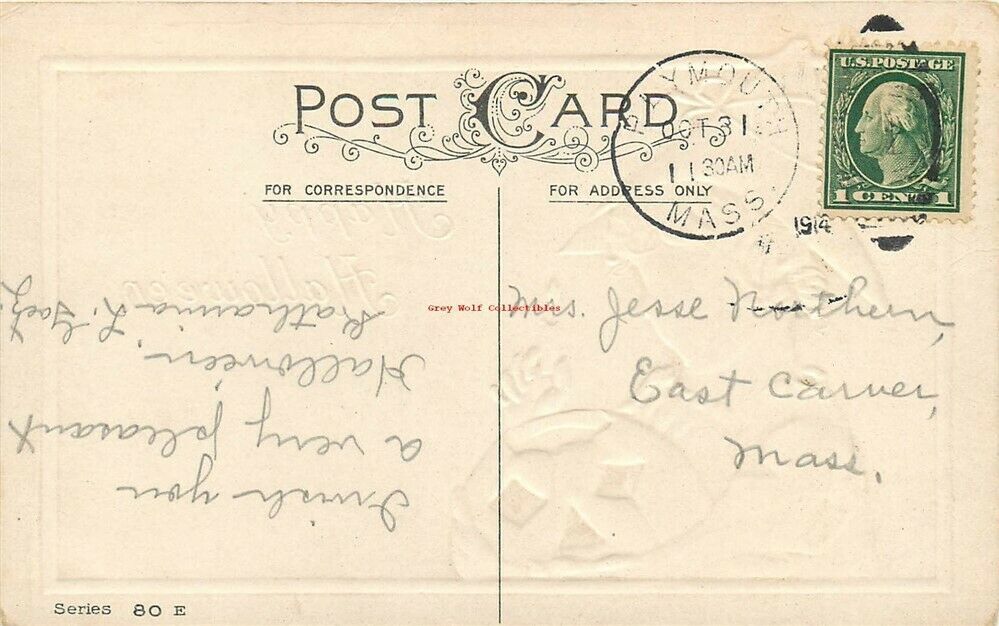 POST CARD
FOR CORRESPONDENCE
FOR ADDRESS ONLY
PLYMOUTH
OCT 31
11 30 AM
MASS.
1914
U.S. POSTAGE
1 CENT 1
Happy
Halloween
Grey Wolf Collectibles
I wish you
a very pleasant
Halloween,
Katharina L.
Mrs. Jesse Northern,
East Carver,
Mass.
Series 80 E